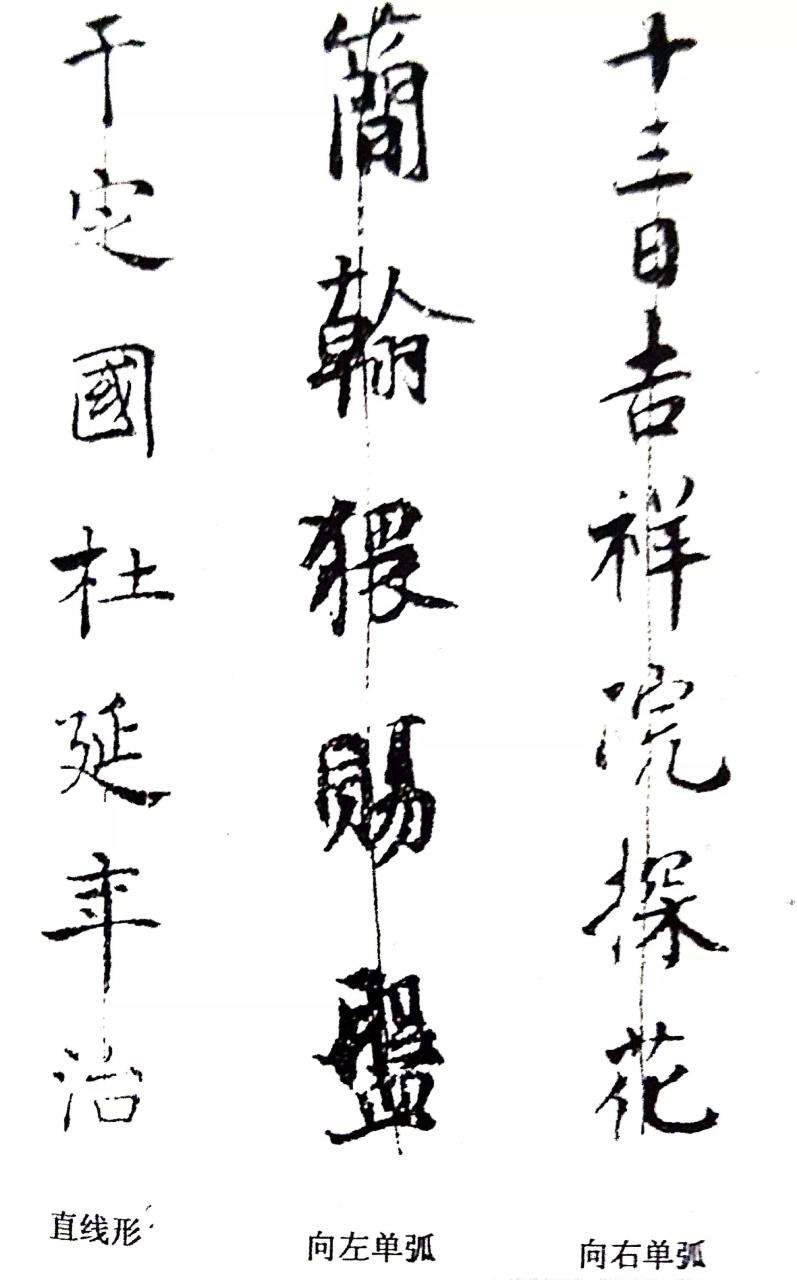 十三日吉祥院探花
簡翰猥賜盥
于定國杜延年治
直线形
向左单弧
向右单弧